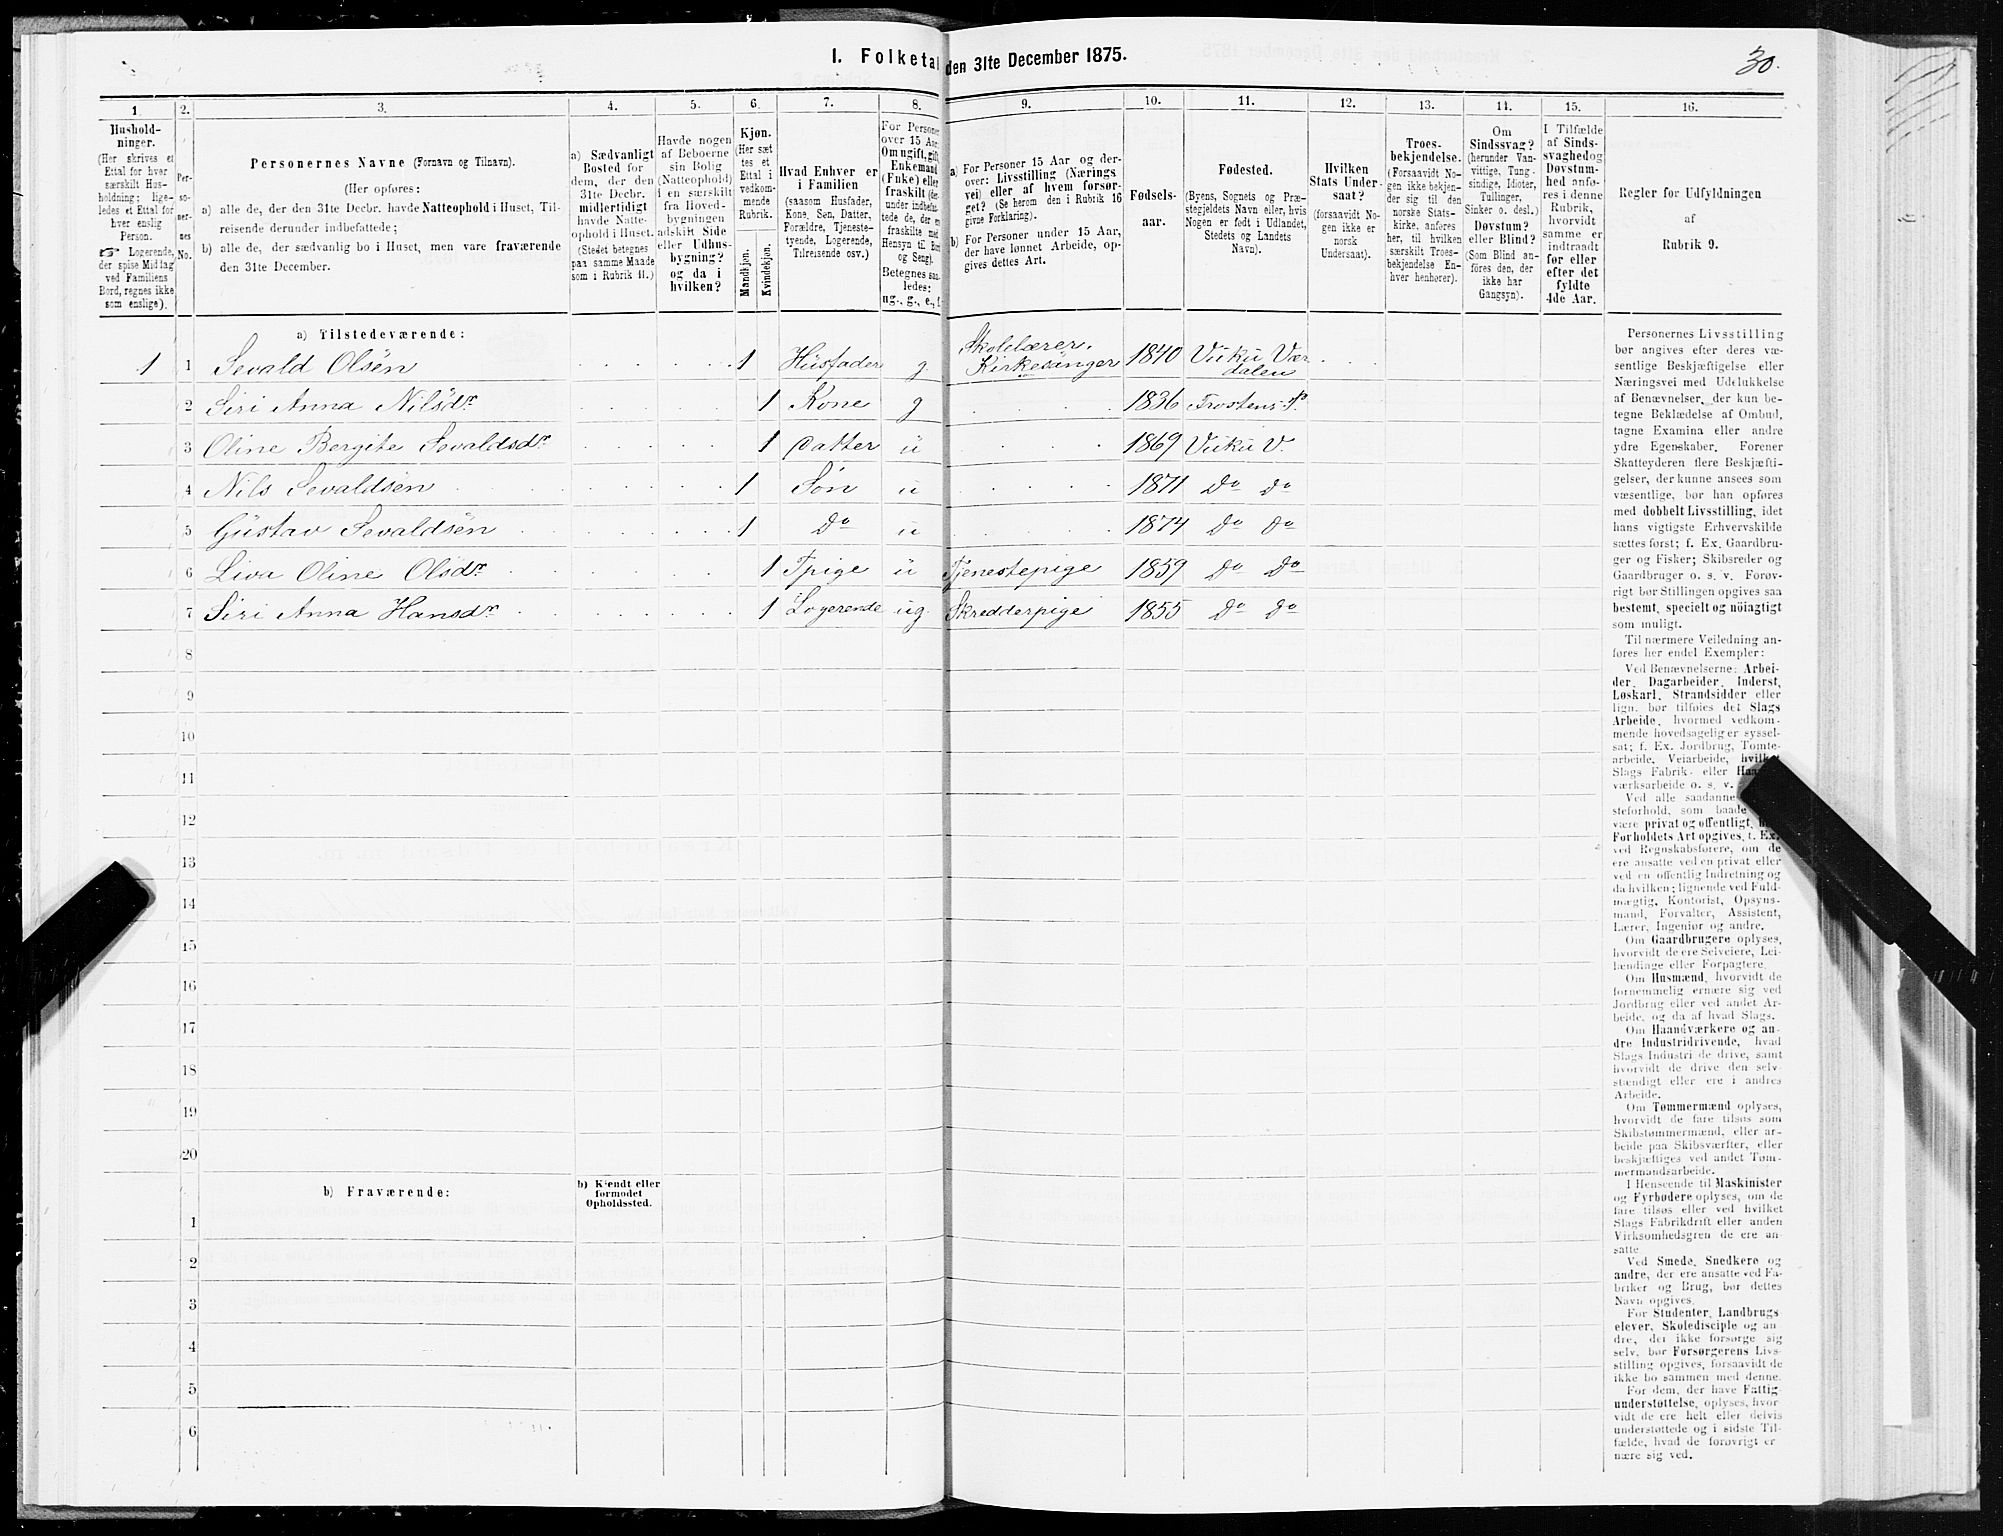 I. Folketal den 31te December 1875.
30.
1. 2. 3. 4. 5. 6. 7. 8. 9. 10. 11. 12. 13. 14. 15. 16.
Hushold-
ninger.
(Her skrives et
Ettal for hver
særskilt Hus-
holdning; lige-
ledes et Ettal for
hver enslig
Person.
☞ Logerende,
der spise Middag
ved Familiens
Bord, regnes ikke
som enslige).
Per-
so-
ner-
nes
No.
Personernes Navne (Fornavn og Tilnavn).
(Her opføres:
a) alle de, der den 31te Decbr. havde Natteophold i Huset, Til-
reisende derunder indbefattede;
b) alle de, der sædvanlig bo i Huset, men vare fraværende
den 31te December.
a) Sædvanligt
Bosted for
dem, der den
31te Decbr.
midlertidigt
havde Natte-
ophold i Huset.
(Stedet betegnes
paa samme Maade
som i Rubrik 11.)
Havde nogen
af Beboerne
sin Bolig
(Natteophold)
i en særskilt
fra Hoved-
bygningen
adskilt Side
eller Udhus-
bygning?
og da i
hvilken?
Kjøn.
(Her sæt
tes et
Ettal i
vedkom-
mende
Rubrik.
Mandkjøn.
Kvindekjøn.
Hvad Enhver er
i Familien
(saasom Husfader,
Kone, Søn, Datter,
Forældre, Tjeneste-
tyende, Logerende,
Tilreisende osv.)
For Personer
over 15 Aar:
Om ugift, gift,
Enkemand
(Enke) eller
fraskilt (der-
under indbefat-
tede de, der er
fraskilte med
Hensyn til Bord
og Seng).
Betegnes saa-
ledes:
ug., g., e., f.
a) For Personer 15 Aar og der-
over: Livsstilling (Nærings
vei) eller af hvem forsør-
get? (Se herom den i Rubrik 16
givne Forklaring).
b) For Personer under 15 Aar,
der have lønnet Arbeide, op-
gives dettes Art.
Fødsels-
aar.
Fødested.
(Byens, Sognets og Præ-
stegjeldets Navn eller, hvis
Nogen er født i Udlandet,
Stedets og Landets
Navn).
Hvilken
Stats Under-
saat?
(forsaavidt No-
gen ikke er
norsk
Undersaat).
Troes-
bekjendelse.
(Forsaavidt No-
gen ikke bekjen-
der sig til den
norske Stats-
kirke, anføres
her, til hvilken
særskilt Troes-
bekjendelse En-
hver henhører).
Om
Sindssvag?
(herunder Van-
vittige, Tung-
sindige, Idioter,
Tullinger,
Sinker o. desl.)
Døvstum?
eller Blind?
(Som Blind an-
føres den, der
ikke har
Gangsyn).
I Tilfælde
af Sinds-
svaghed og
Døvstum-
hed anfø-
res i denne
Rubrik,
hvorvidt
samme er
indtraadt
før eller
efter det
fyldte
4de Aar.
Regler før Udfyldningen
af
Rubrik 9.
a) Tilstedeværende:
1 1 Sevald Olsen 1 Husfader g. Skolelærer, Kirkesanger 1840 Vuku Værdalen
2 Siri Anna Nilsdr. 1 Kone g 1836 Frostens Pr.
3 Oline Bergite Sevaldsdr. 1 Datter u 1869 Vuku V.
4 Nils Sevaldsen 1 Søn u 1871 Do Do
5 Gustav Sevaldsen 1 Do u 1874 Do Do
6 Liva Oline Olsdr. 1 Tpige u Tjenestepige 1859 Do Do
7 Siri Anna Hansdr. 1 Logerende ug. Skredderpige 1855 Do Do
8
9
10
11
12
13
14
15
16
17
18
19
20
b) Fraværende:
b) Kjendt eller
formodet
Opholdssted.
1
2
3
4
5
6
Personernes Livsstilling
bør angives efter deres væ-
sentlige Beskjæftigelse eller
Næringsvei med Udelukkelse
af Benævnelser, der kun be-
tegne Beklædelse af Ombud,
tagne Examina eller andre
ydre Egenskaber. Forener
Skatteyderen flere Beskjæfti-
gelser, der kunne ansees som
væsentlige, bør han opføres
med dobbelt Livsstilling, idet
hans vigtigste Erhvervskilde
sættes først; f. Ex. Gaardbru-
ger og Fisker; Skibsreder og
Gaardbruger o. s. v. Forøv-
rigt bør Stillingen opgives saa
bestemt, specielt og nöiagtigt
som muligt.
Til nærmere Veiledning an-
føres her endel Exempler:
Ved Benævnelserne: Arbei-
der, Dagarbeider, Inderst,
Løskarl, Strandsidder eller
lign. bør tilføies det Slags
Arbeide, hvormed vedkom-
mende hovedsagelig er syssel-
sat; f. Ex. Jordbrug, Tomte-
arbeide, Veiarbeide, hvilket
Slags Fabrik- eller Haand-
værksarbeide o. s. v.
Ved alle saadanne
steforhold, som baade
være privat og offentligt,
Forholdets Art opgives, t. Ex.
ved Regnskabsførere, om de
ere ansatte ved en privat eller
ved en offentlig Indretning og
da hvilken; lignende ved Fuld-
mægtig, Kontorist, Opsyns-
mand, Forvalter, Assistent,
Lærer, Ingeniør og andre.
Om Gaardbrugere oplyses,
hvorvidt de ere Selveiere, Lei-
lændinge eller Forpagtere.
Om Husmænd, hvorvidt de
fornemmelig ernære sig ved
Jordbrug eller ved andet Ar-
beide, og da af hvad Slags.
Om Haandværkere og an-
dre Industridrivende, hvad
Slags Industri de drive, samt
hvorvidt de drive den selv-
stændigt eller ere i andres
Arbeide.
Om Tømmermænd oplyses,
hvorvidt de fare tilsøs som
Skibstømmermænd, eller ar-
beide paa Skibsværfter, eller
beskjæftiges ved andet Tøm-
mermandsarbeide.
I Henseende til Maskinister
og Fyrbødere oplyses, om de
fare tilsøs eller ved hvilket
Slags Fabrikdrift eller anden
Virksomhedsgren de ere an-
satte.
Ved Smede, Snedkere og
andre, der ere ansatte ved Fa-
briker og Brug, bør dettes
Navn opgives.
For Studenter, Landbrugs-
elever, Skoledisciple og an-
dre, der ikke forsørge sig
selv, bør Forsørgerens Livs-
stilling opgives, forsaavidt de
ikke bo sammen med denne.
For dem, der have Fattig-
understøttelse, oplyses, hvor-
vidt de ere helt eller delvis
understøttede og i sidste Til-
fælde, hvad de forøvrigt er-
nære sig ved.